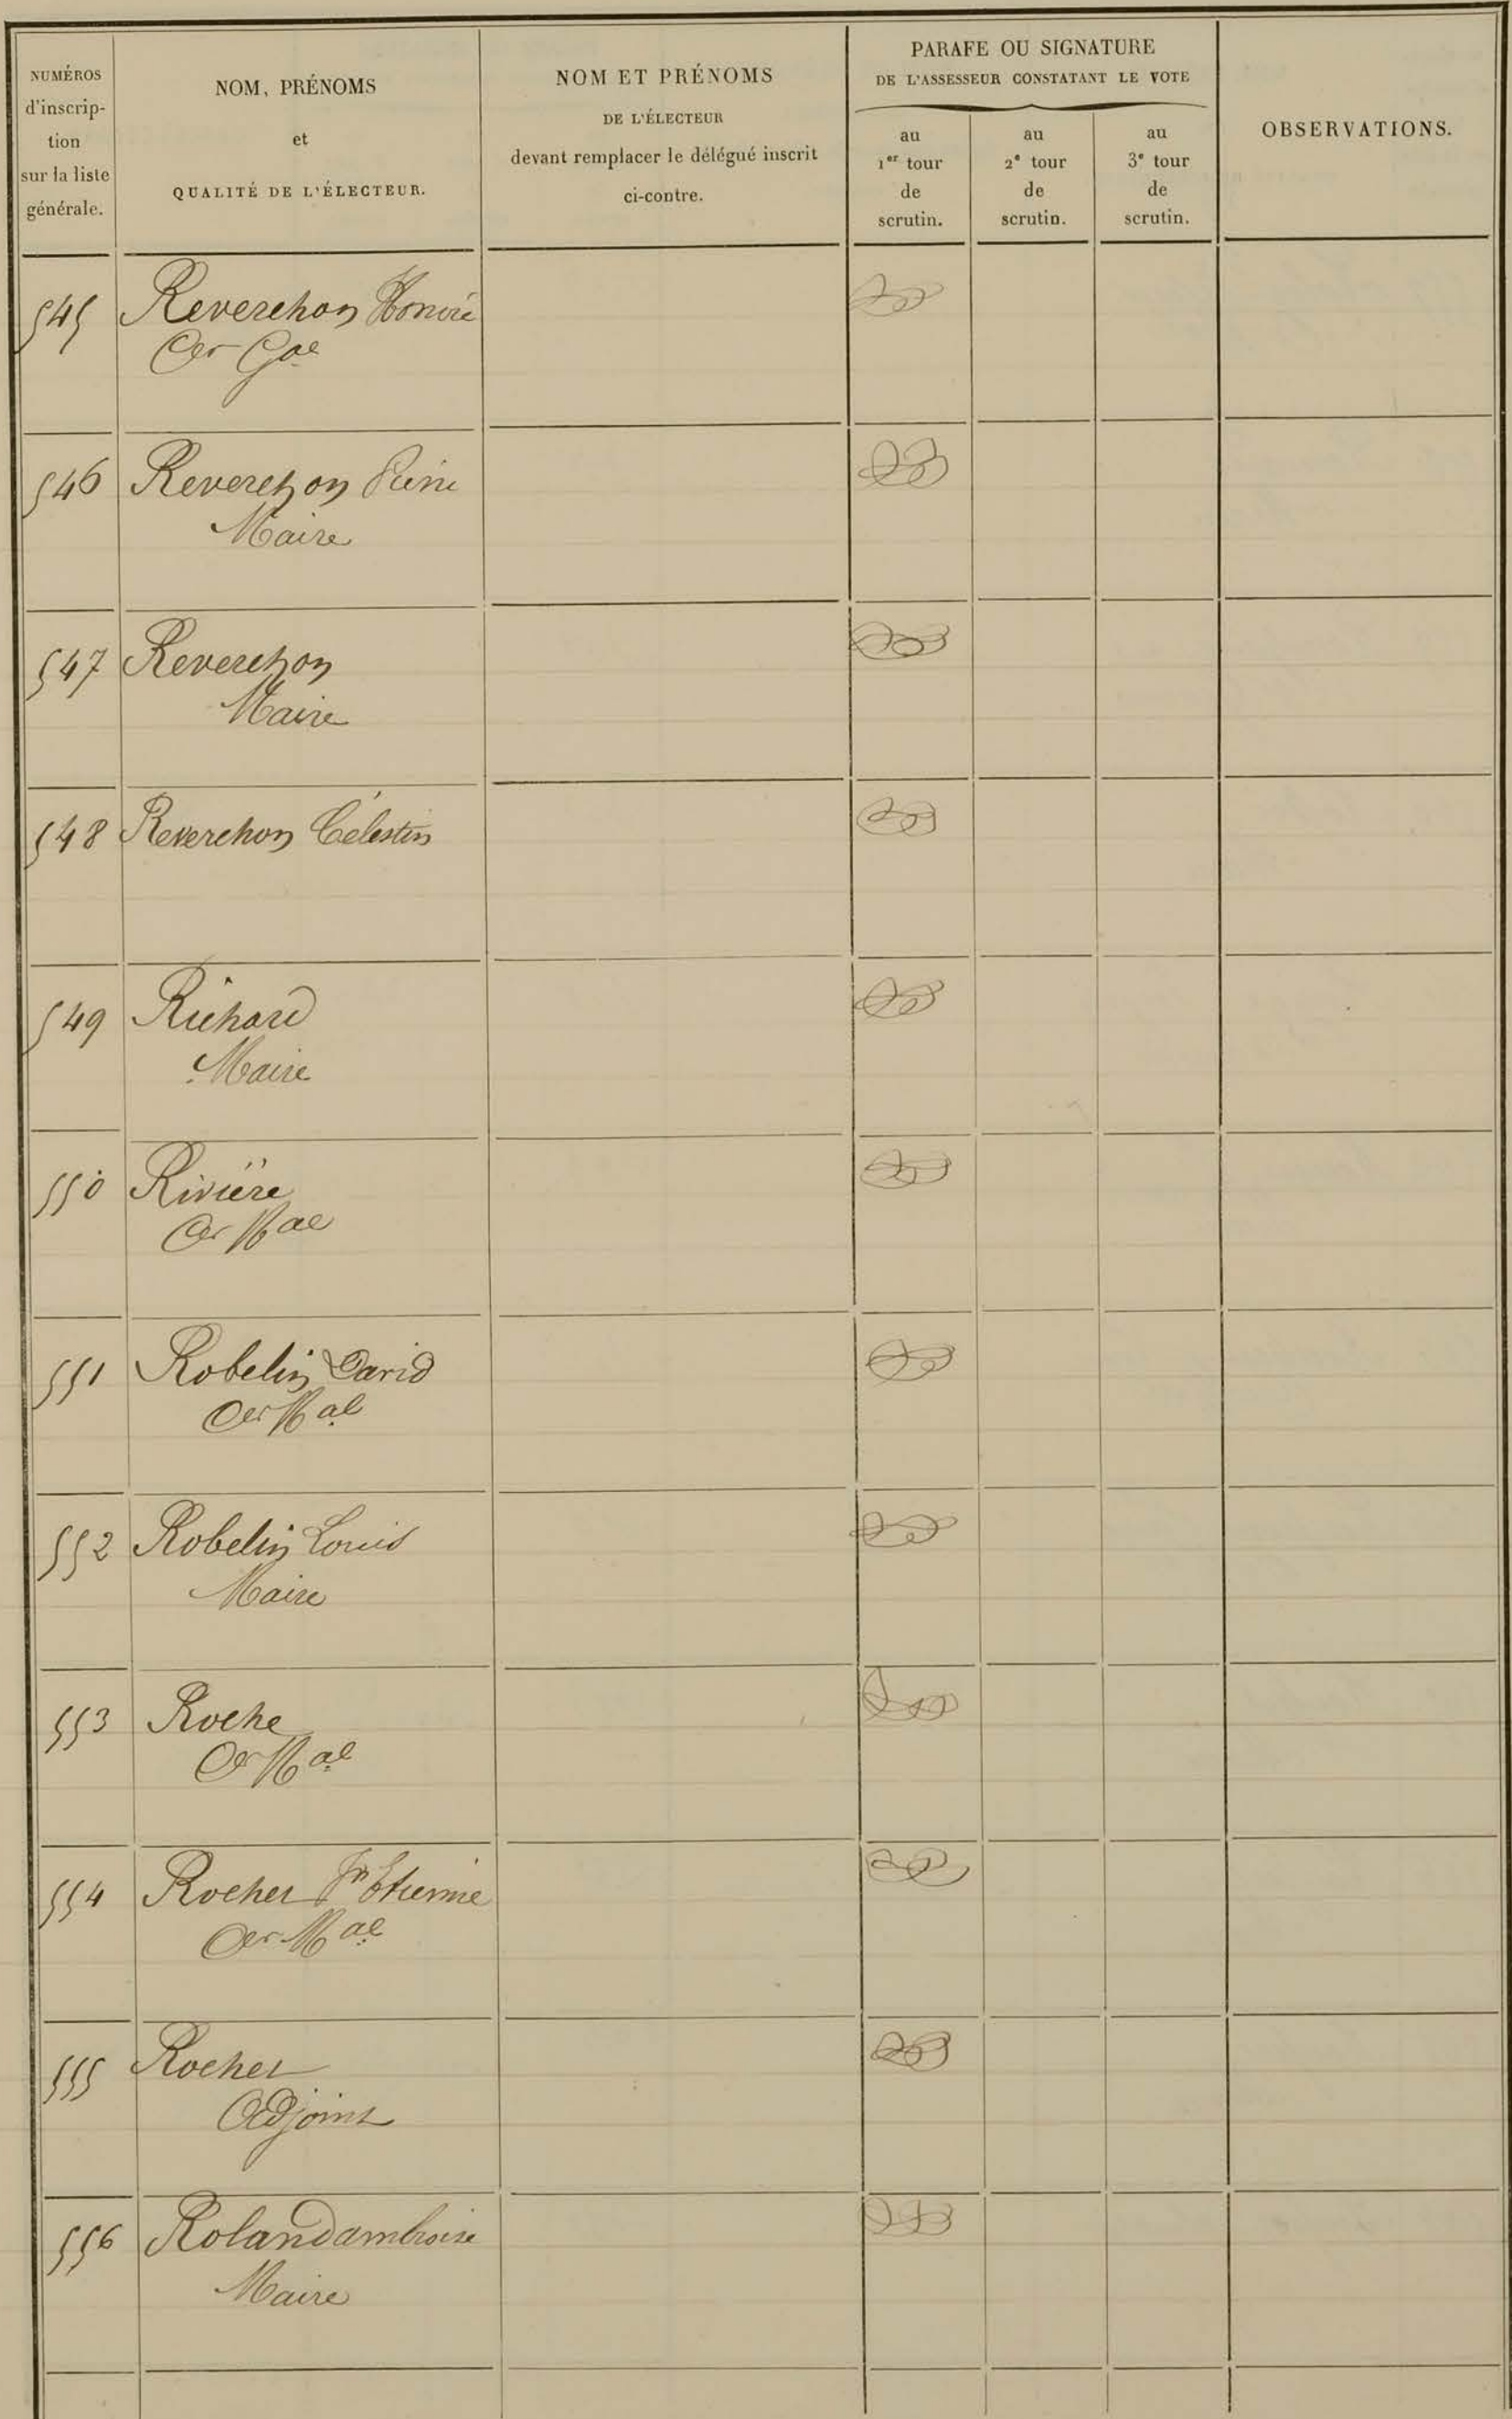 NUMÉROS
d'inscrip-
tion
sur la liste
générale.
NOM, PRÉNOMS
et
QUALITÉ DE L'ÉLECTEUR.
NOM ET PRÉNOMS
DE L'ÉLECTEUR
devant remplacer le délégué inscrit
ci-contre.
PARAFE OU SIGNATURE
DE L'ASSESSEUR CONSTATANT LE VOTE
au
1er tour
de
scrutin.
au
2e tour
de
scrutin.
au
3e tour
de
scrutin.
OBSERVATIONS.
545 Reverchon Honoré
Cer Gal
546 Reverchon
Maire
547 Reverchon
Maire
548 Reverchon Célestin
549 Richard
Maire
550 Rivière
Cer Mal
551 Robelin David
Cer Mal
552 Robelin Louis
Maire
553 Roche
Cer Mal
554 Rocher Etienne
Cer Mal
555 Rocher
Adjoint
556 Roland ambroise
Maire